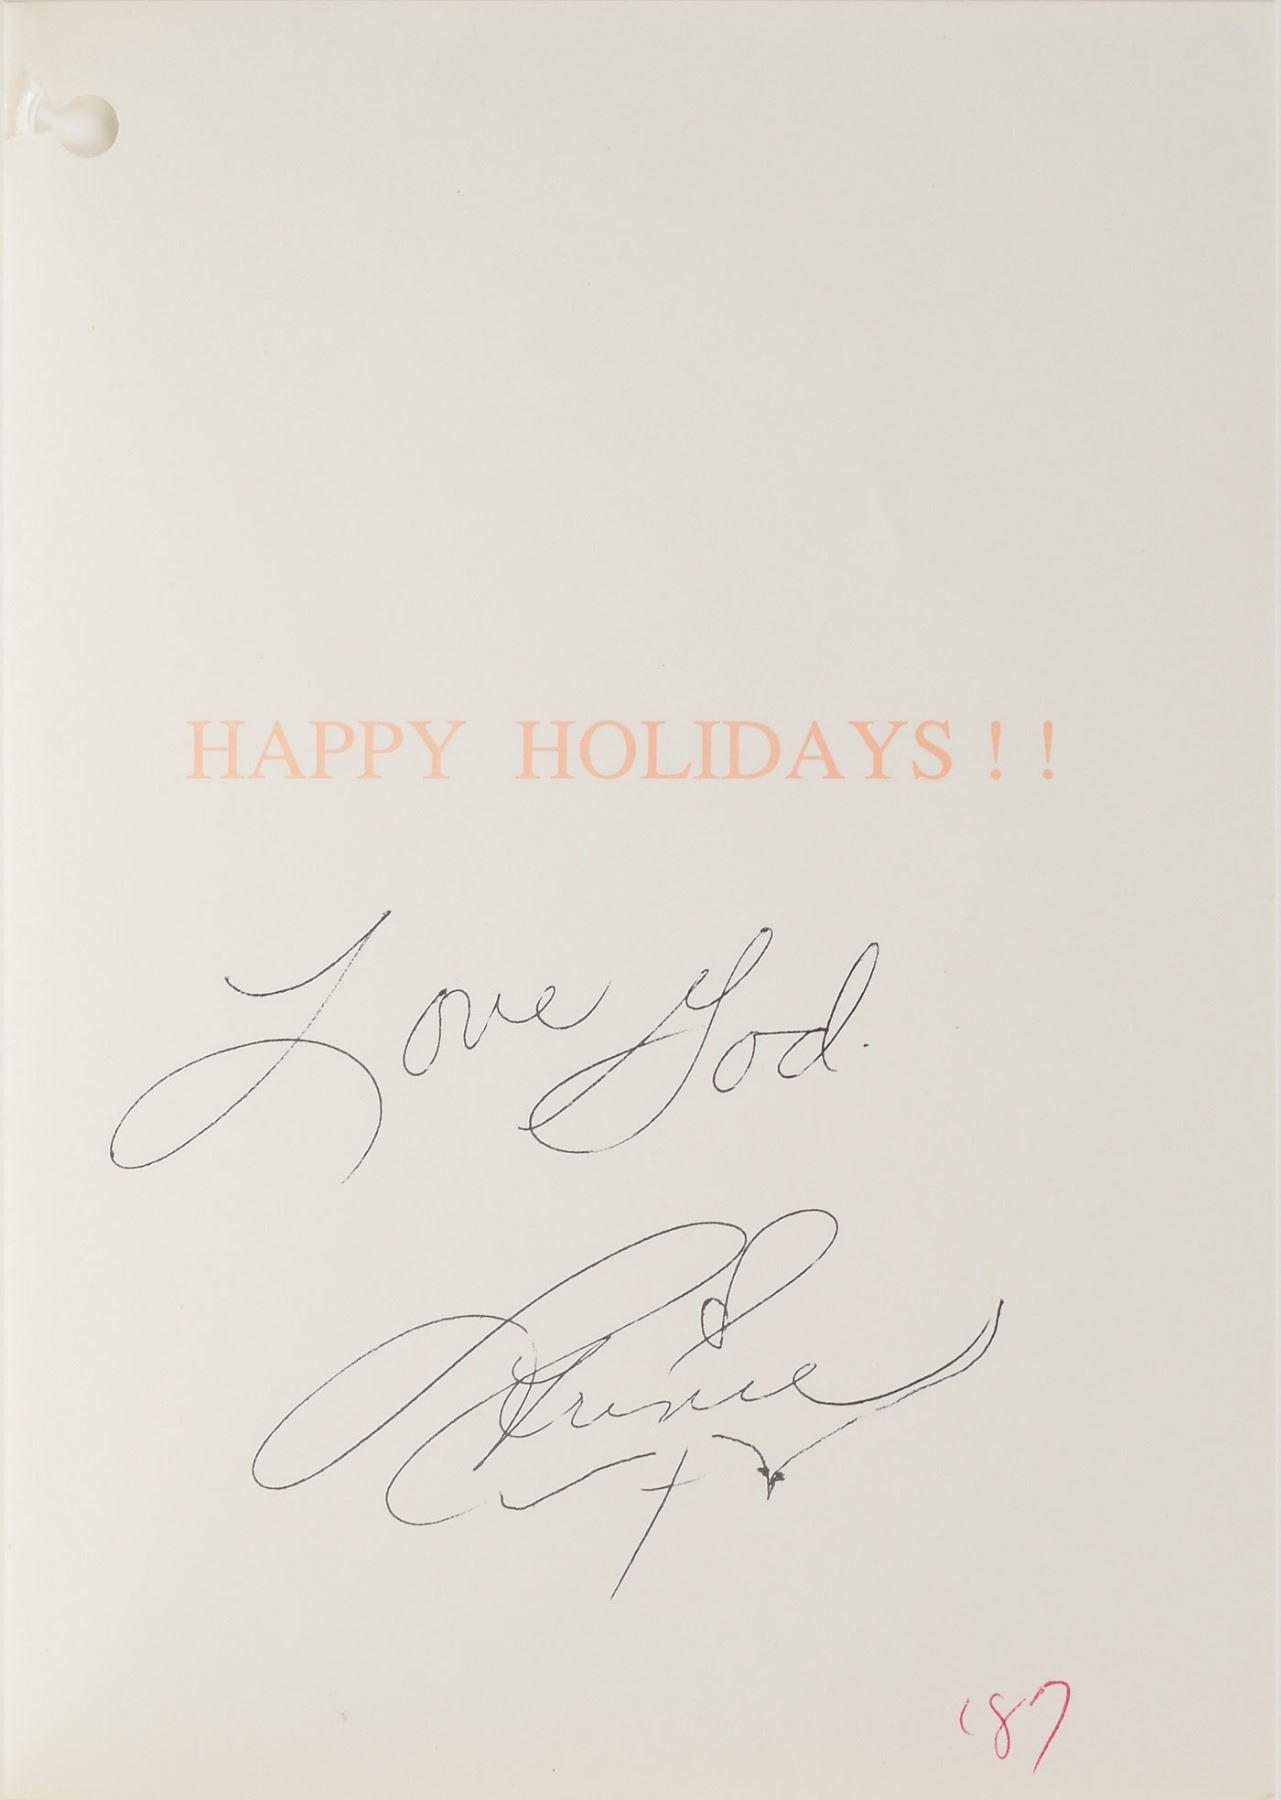 HAPPY HOLIDAYS!!
Love God.
Prince
'87